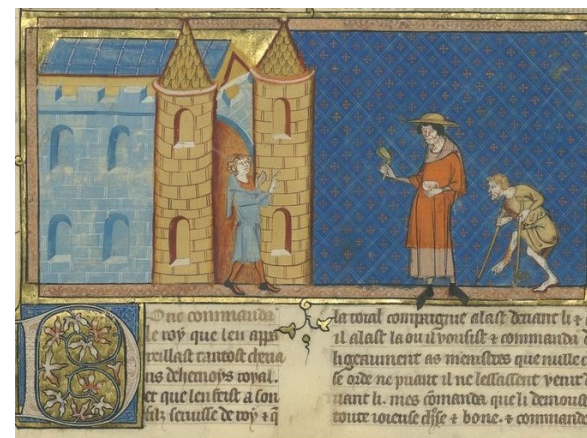 One commanda
le roy que len appa
reillast tantost cheua
us dehernoys royal.
et que len feist a son
filz seruisse de roy ⁊ q̄
la roial compaignie alast deuant li ⁊
il alast la ou il vousist ⁊ commanda
ligeaument as menistres que nulle
se orde ne puant il ne lessassent venir
nant li. mes comanda que li demoust
toute ioieuse chose ⁊ bone. ⁊ commande